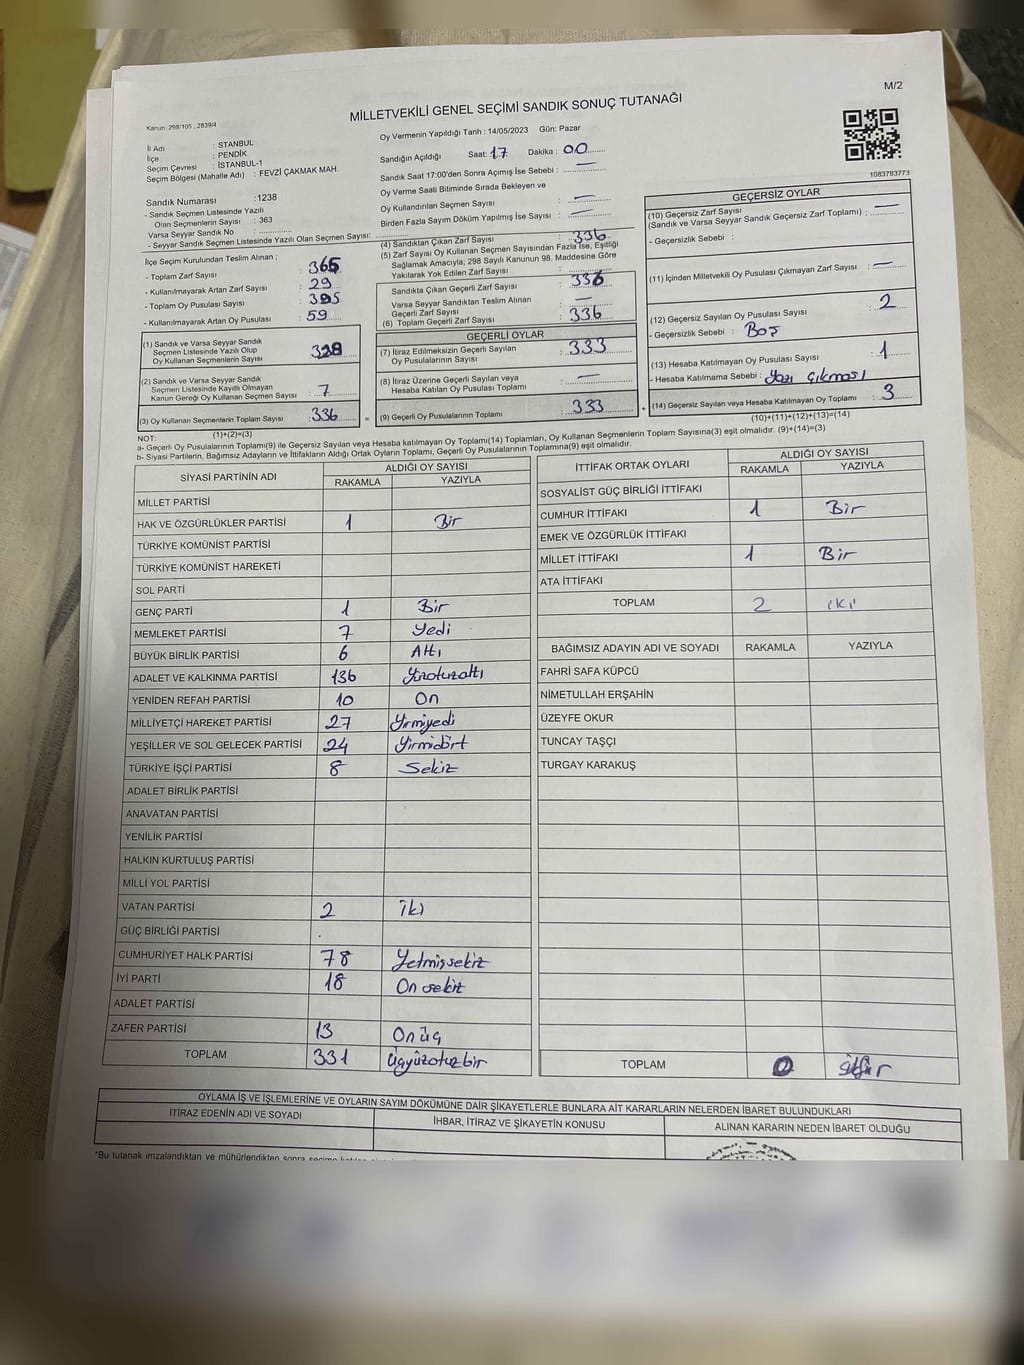 M/2
MİLLETVEKİLİ GENEL SEÇİMİ SANDIK SONUÇ TUTANAĞI
Kanun: 298/105 , 2839/4
İl Adı : STANBUL
İlçe : PENDİK
Seçim Çevresi : İSTANBUL-1
Seçim Bölgesi (Mahalle Adı) : FEVZİ ÇAKMAK MAH.
Oy Vermenin Yapıldığı Tarih : 14/05/2023 Gün: Pazar
Sandığın Açıldığı Saat: 17 Dakika : 00
Sandık Saat 17:00'den Sonra Açımış İse Sebebi : —
Oy Verme Saati Bitiminde Sırada Bekleyen ve
Oy Kullandırılan Seçmen Sayısı : —
Birden Fazla Sayım Döküm Yapılmış İse Sayısı : —
1083783773
Sandık Numarası :1238
- Sandık Seçmen Listesinde Yazılı
Olan Seçmenlerin Sayısı : 363
Varsa Seyyar Sandık No :
- Seyyar Sandık Seçmen Listesinde Yazılı Olan Seçmen Sayısı:
İlçe Seçim Kurulundan Teslim Alınan ;
- Toplam Zarf Sayısı : 365
- Kullanılmayarak Artan Zarf Sayısı : 29
- Toplam Oy Pusulası Sayısı : 395
- Kullanılmayarak Artan Oy Pusulası : 59
(1) Sandık ve Varsa Seyyar Sandık
Seçmen Listesinde Yazılı Olup
Oy Kullanan Seçmenlerin Sayısı : 328
(2) Sandık ve Varsa Seyyar Sandık
Seçmen Listesinde Kayıtlı Olmayan
Kanun Gereği Oy Kullanan Seçmen Sayısı : 7
(3) Oy Kullanan Seçmenlerin Toplam Sayısı : 336
(1)+(2)=(3)
(4) Sandıktan Çıkan Zarf Sayısı : 336
(5) Zarf Sayısı Oy Kullanan Seçmen Sayısından Fazla İse, Eşitliği
Sağlamak Amacıyla; 298 Sayılı Kanunun 98. Maddesine Göre
Yakılarak Yok Edilen Zarf Sayısı :
Sandıkta Çıkan Geçerli Zarf Sayısı : 336
Varsa Seyyar Sandıktan Teslim Alınan
Geçerli Zarf Sayısı : —
(6) Toplam Geçerli Zarf Sayısı : 336
GEÇERLİ OYLAR
(7) İtiraz Edilmeksizin Geçerli Sayılan
Oy Pusulasının Sayısı : 333
(8) İtiraz Üzerine Geçerli Sayılan veya
Hesaba Katılan Oy Pusulası Toplamı : —
= (9) Geçerli Oy Pusulalarının Toplamı : 333
GEÇERSİZ OYLAR
(10) Geçersiz Zarf Sayısı
(Sandık ve Varsa Seyyar Sandık Geçersiz Zarf Toplamı) : —
- Geçersizlik Sebebi :
(11) İçinden Milletvekili Oy Pusulası Çıkmayan Zarf Sayısı : —
(12) Geçersiz Sayılan Oy Pusulası Sayısı : 2
- Geçersizlik Sebebi : Boş
(13) Hesaba Katılmayan Oy Pusulası Sayısı : 1
- Hesaba Katılmama Sebebi : Yazı Çıkması
+ (14) Geçersiz Sayılan veya Hesaba Katılmayan Oy Toplamı : 3
(10)+(11)+(12)+(13)=(14)
NOT:
a- Geçerli Oy Pusulalarının Toplamı(9) ile Geçersiz Sayılan veya Hesaba katılmayan Oy Toplamı(14) Toplamları, Oy Kullanan Seçmenlerin Toplam Sayısına(3) eşit olmalıdır. (9)+(14)=(3)
b- Siyasi Partilerin, Bağımsız Adayların ve İttifakların Aldığı Ortak Oyların Toplamı, Geçerli Oy Pusulalarının Toplamına(9) eşit olmalıdır.
SİYASİ PARTİNİN ADI ALDIĞI OY SAYISI
RAKAMLA YAZIYLA
MİLLET PARTİSİ
HAK VE ÖZGÜRLÜKLER PARTİSİ 1 Bir
TÜRKİYE KOMÜNİST PARTİSİ
TÜRKİYE KOMÜNİST HAREKETİ
SOL PARTİ
GENÇ PARTİ 1 Bir
MEMLEKET PARTİSİ 7 Yedi
BÜYÜK BİRLİK PARTİSİ 6 Altı
ADALET VE KALKINMA PARTİSİ 136 Yüzotuzaltı
YENİDEN REFAH PARTİSİ 10 On
MİLLİYETÇİ HAREKET PARTİSİ 27 Yirmiyedi
YEŞİLLER VE SOL GELECEK PARTİSİ 24 Yirmidört
TÜRKİYE İŞÇİ PARTİSİ 8 Sekiz
ADALET BİRLİK PARTİSİ
ANAVATAN PARTİSİ
YENİLİK PARTİSİ
HALKIN KURTULUŞ PARTİSİ
MİLLİ YOL PARTİSİ
VATAN PARTİSİ 2 İki
GÜÇ BİRLİĞİ PARTİSİ
CUMHURİYET HALK PARTİSİ 78 Yetmişsekiz
İYİ PARTİ 18 On sekiz
ADALET PARTİSİ
ZAFER PARTİSİ 13 Onüç
TOPLAM 331 Üçyüzotuzbir
İTTİFAK ORTAK OYLARI ALDIĞI OY SAYISI
RAKAMLA YAZIYLA
SOSYALİST GÜÇ BİRLİĞİ İTTİFAKI
CUMHUR İTTİFAKI 1 Bir
EMEK VE ÖZGÜRLÜK İTTİFAKI
MİLLET İTTİFAKI 1 Bir
ATA İTTİFAKI
TOPLAM 2 iki
BAĞIMSIZ ADAYIN ADI VE SOYADI RAKAMLA YAZIYLA
FAHRİ SAFA KÜPCÜ
NİMETULLAH ERŞAHİN
ÜZEYFE OKUR
TUNCAY TAŞÇI
TURGAY KARAKUŞ
TOPLAM 0 sıfır
OYLAMA İŞ VE İŞLEMLERİNE VE OYLARIN SAYIM DÖKÜMÜNE DAİR ŞİKAYETLERLE BUNLARA AİT KARARLARIN NELERDEN İBARET BULUNDUKLARI
İTİRAZ EDENİN ADI VE SOYADI İHBAR, İTİRAZ VE ŞİKAYETİN KONUSU ALINAN KARARIN NEDEN İBARET OLDUĞU
*Bu tutanak imzalandıktan ve mühürlendikten sonra